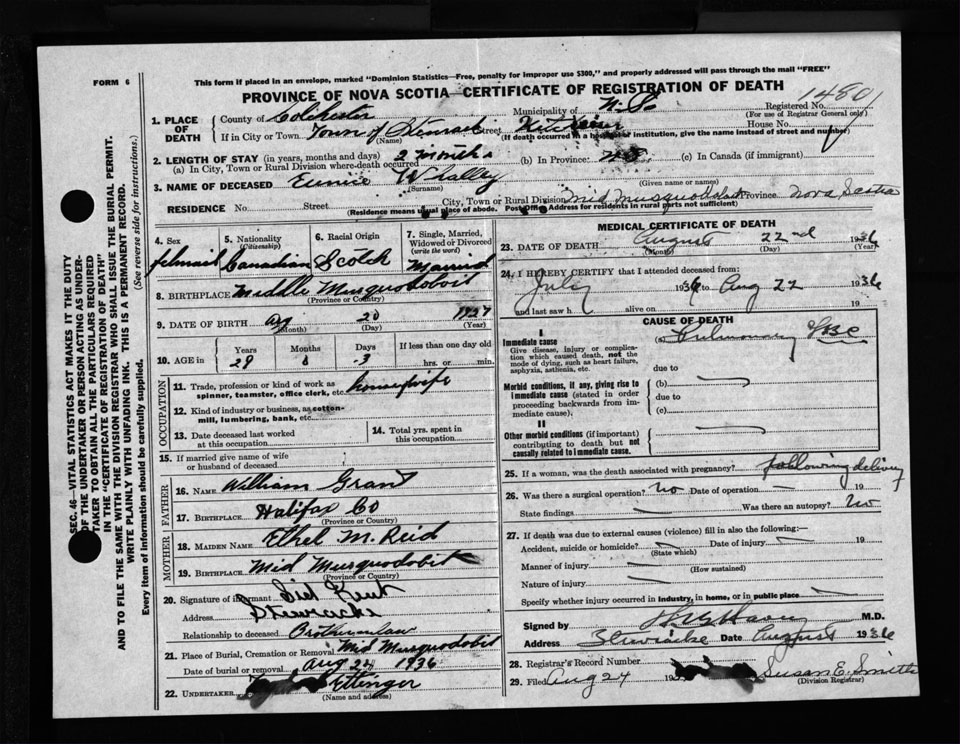 FORM 6
This form if placed in an envelope, marked "Dominion Statistics—Free, penalty for improper use $300," and properly addressed will pass through the mail "FREE"
PROVINCE OF NOVA SCOTIA—CERTIFICATE OF REGISTRATION OF DEATH
SEC. 46—VITAL STATISTICS ACT MAKES IT THE DUTY
OF THE UNDERTAKER OR PERSON ACTING AS UNDER-
TAKER TO OBTAIN ALL THE PARTICULARS REQUIRED
IN THE "CERTIFICATE OF REGISTRATION OF DEATH"
AND TO FILE THE SAME WITH THE DIVISION REGISTRAR WHO SHALL ISSUE THE BURIAL PERMIT.
WRITE PLAINLY WITH UNFADING INK. THIS IS A PERMANENT RECORD.
Every item of information should be carefully supplied. (See reverse side for instructions.)
1. PLACE OF DEATH
County of Colchester Municipality of Registered No. 14801
(For use of Registrar General only)
If in City or Town Town of Street House No.
(Name) (If death occurred in a hospital or institution, give the name instead of street and number)
2. LENGTH OF STAY (in years, months and days)
(a) In City, Town or Rural Division where death occurred 2 months (b) In Province (c) In Canada (if immigrant)
3. NAME OF DECEASED Eunice Whalley
(Surname) (Given name or names)
RESIDENCE No. Street City, Town or Rural Division Mid Musquodoboit Province Nova Scotia
(Residence means usual place of abode. Post Office Address for residents in rural parts not sufficient)
4. Sex
5. Nationality (Citizenship) Canadian
6. Racial Origin Scotch
7. Single, Married, Widowed or Divorced (write the word) Married
8. BIRTHPLACE Middle Musquodoboit
(Province or Country)
9. DATE OF BIRTH Aug 20
(Month) (Day) (Year)
10. AGE in Years Months Days If less than one day old
29 3 hrs. or min.
OCCUPATION
11. Trade, profession or kind of work as spinner, teamster, office clerk, etc. housewife
12. Kind of industry or business, as cotton-mill, lumbering, bank, etc.
13. Date deceased last worked at this occupation
14. Total yrs. spent in this occupation
15. If married give name of wife or husband of deceased
FATHER
16. NAME William Grant
17. BIRTHPLACE Halifax Co
(Province or Country)
MOTHER
18. MAIDEN NAME Ethel M. Reid
19. BIRTHPLACE Mid Musquodobit
(Province or Country)
20. Signature of informant
Address Stewiacke
Relationship to deceased Brother in law
21. Place of Burial, Cremation or Removal Mid Musquodobit
Date of burial or removal Aug 24 1936
22. UNDERTAKER Ettinger
(Name and address)
MEDICAL CERTIFICATE OF DEATH
23. DATE OF DEATH August 22nd 1936
(Month) (Day) (Year)
24. I HEREBY CERTIFY that I attended deceased from:
July 1936 to Aug 22 1936
and last saw h alive on 19
CAUSE OF DEATH
I
Immediate cause (a) Pulmonary TBC
Give disease, injury or complication which caused death, not the mode of dying, such as heart failure, asphyxia, asthenia, etc.
due to
Morbid conditions, if any, giving rise to immediate cause (stated in order proceeding backwards from immediate cause).
(b)
due to
(c)
II
Other morbid conditions (if important) contributing to death but not causally related to immediate cause.
25. If a woman, was the death associated with pregnancy? following delivery
26. Was there a surgical operation? No Date of operation 19
State findings Was there an autopsy? No
27. If death was due to external causes (violence) fill in also the following:—
Accident, suicide or homicide? Date of injury 19
(State which)
Manner of injury
(How sustained)
Nature of injury
Specify whether injury occurred in industry, in home, or in public place
Signed by M.D.
Address Stewiacke Date August 1936
28. Registrar's Record Number
29. Filed Aug 24 19 Susan E. Smith
(Division Registrar)